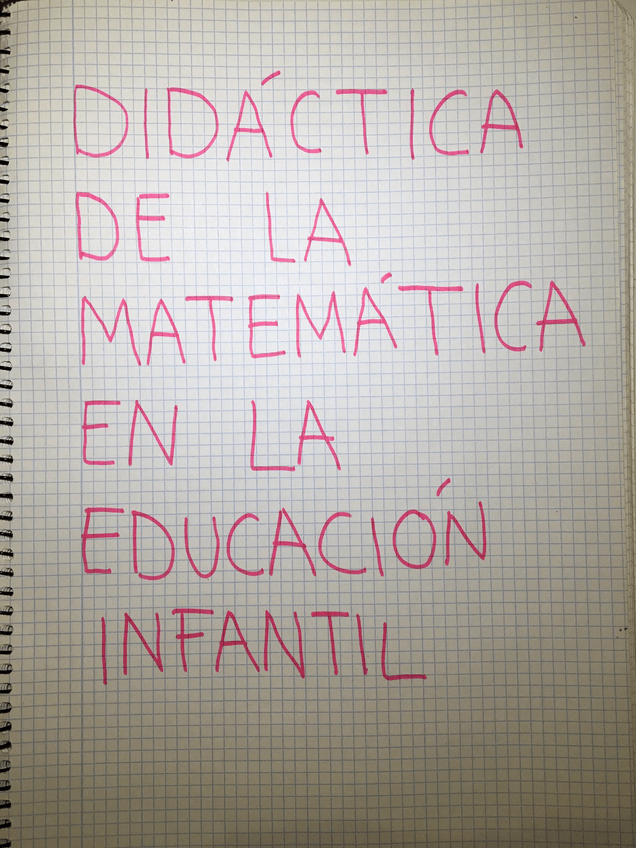 DIDÁCTICA
DE LA
MATEMÁTICA
EN LA
EDUCACIÓN
INFANTIL